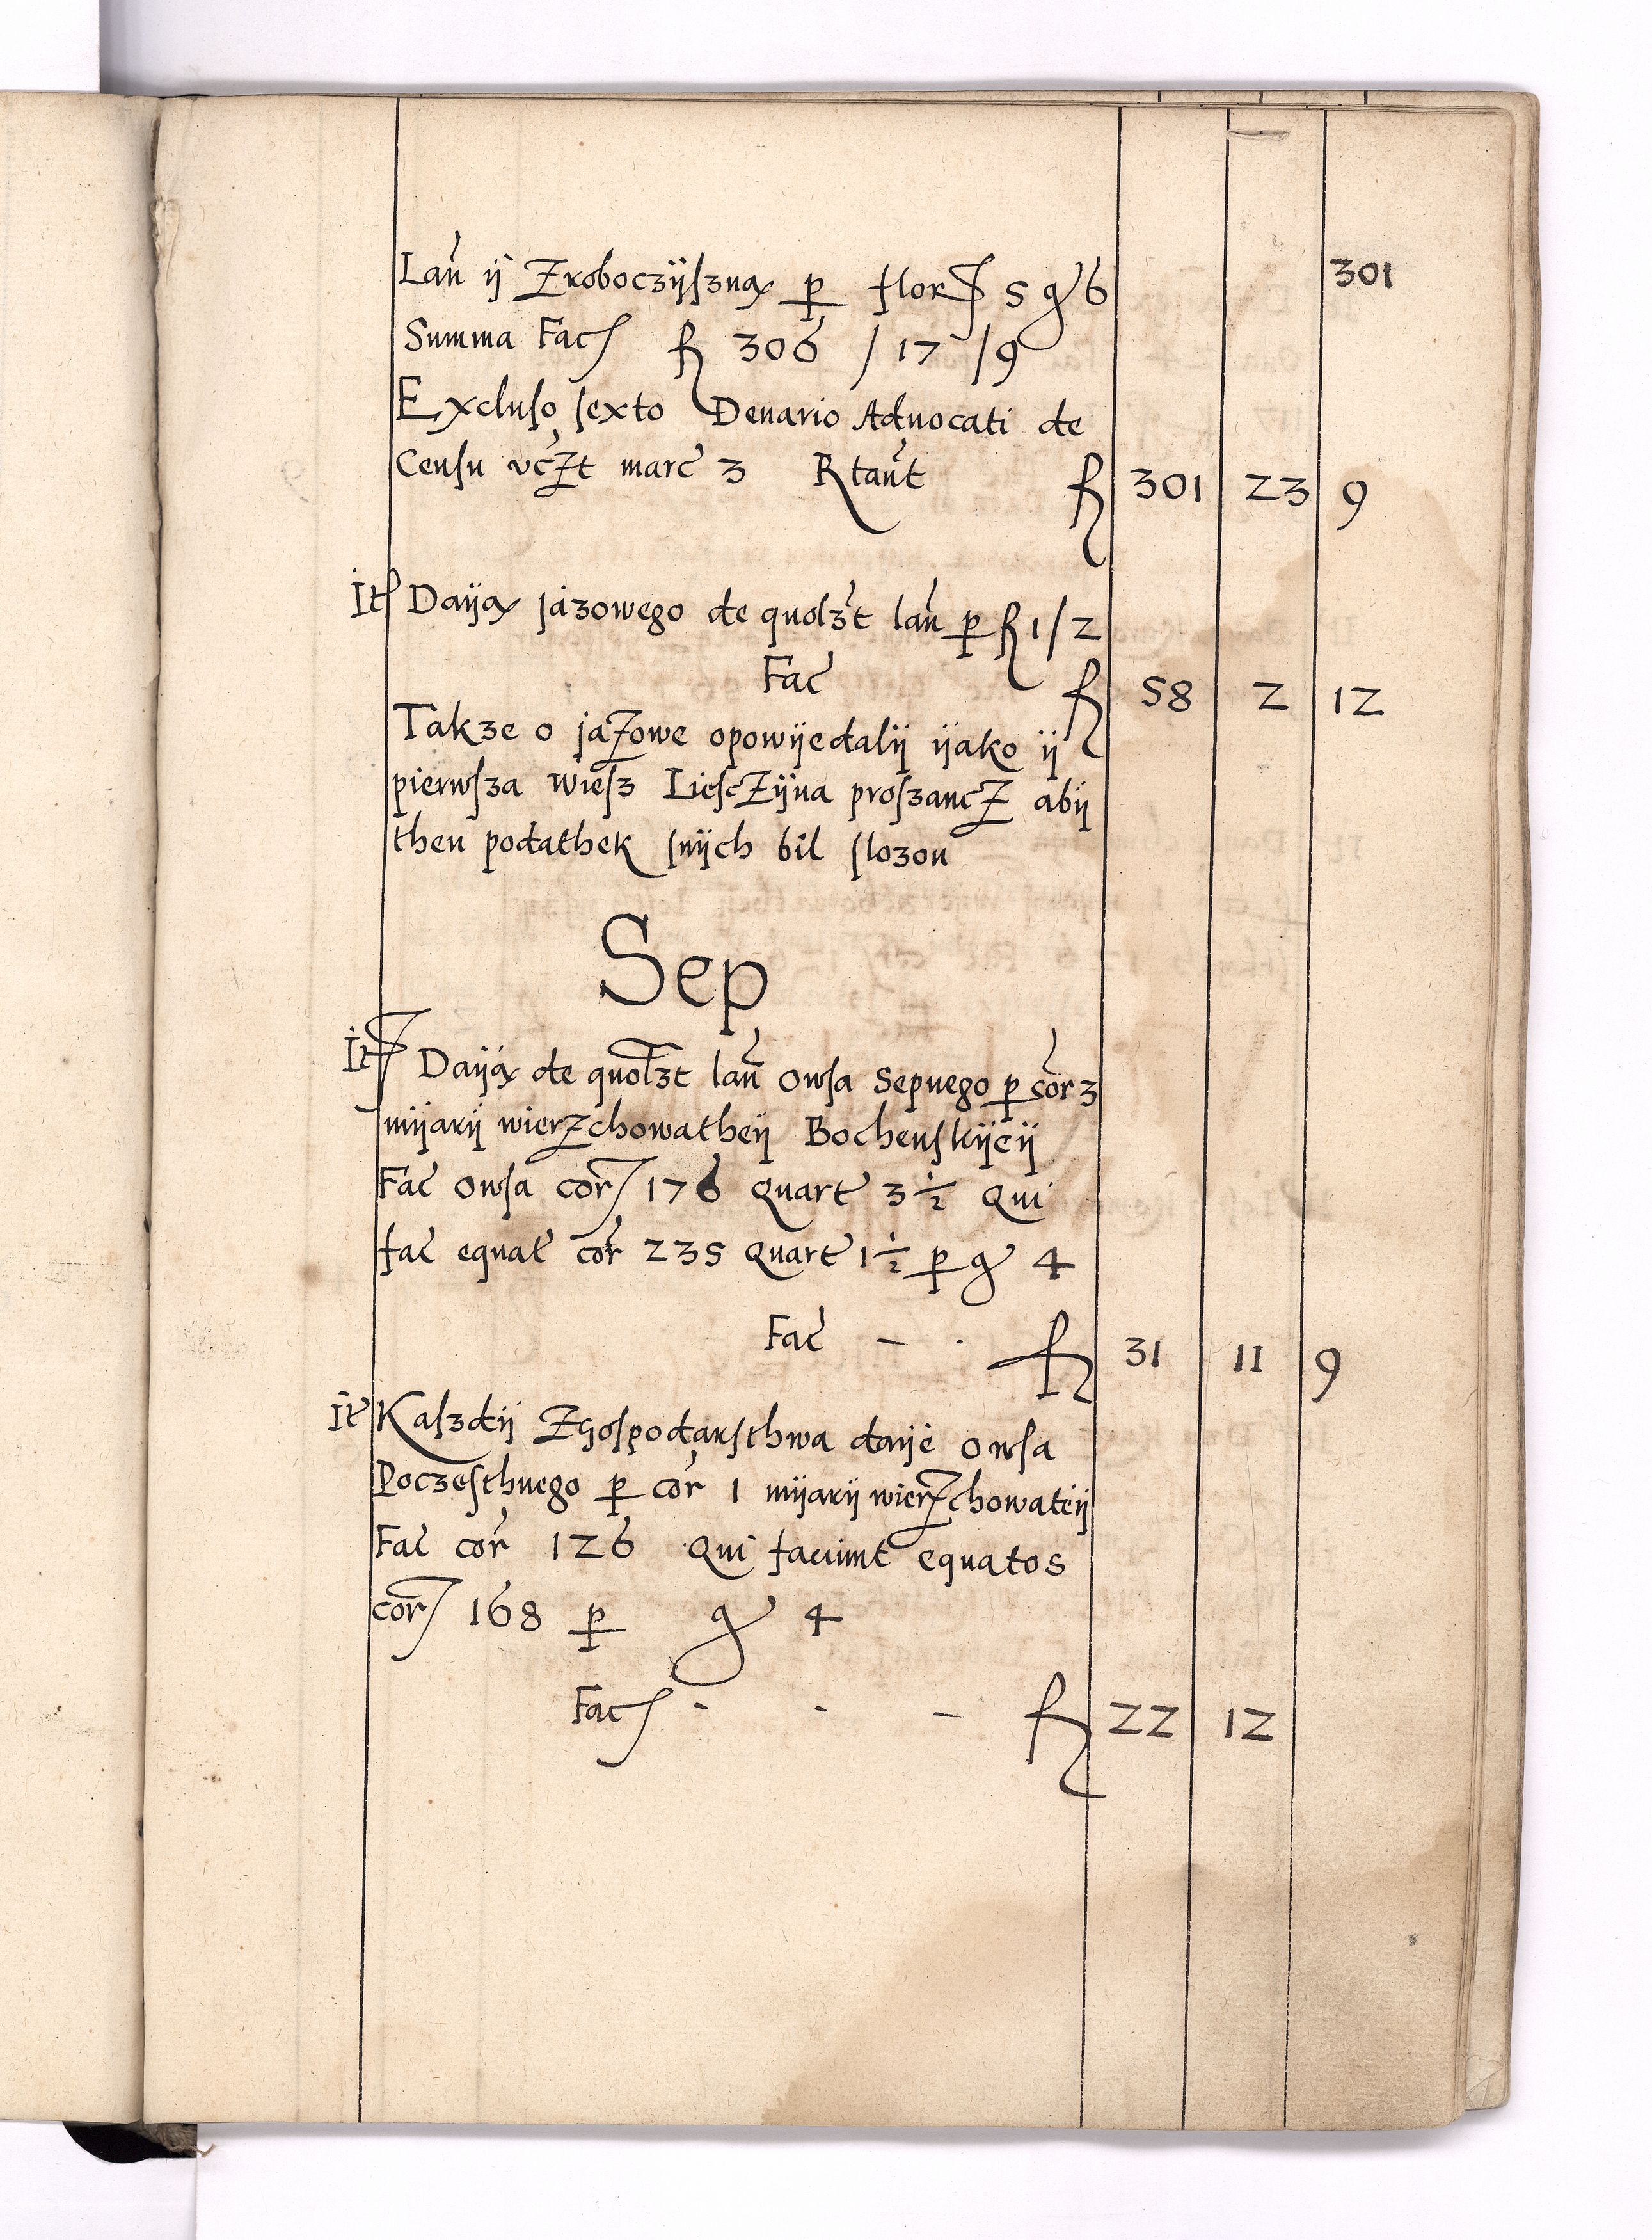 301
Lań ij Zroboczijſzną p flor 5 g 6
Summa Fac fl 306 / 17 / 9
Excluſo ſexto Denario Aduocati de
Cenſu vczt marc 3 Rtańt fl 301 23 9
It Daiją jazowego de quolzt lań p fl 1/2
Fac fl 58 2 12
Takze o jazowe opowijedalij ijako ij
pierwſza wieſz LieſcZijna proſzancz abij
then podathek ſnijch bil ſlozon
Sep
It Daiją de quolzt lań owſa Sepnego p cor 3
mijarij wierzchowatheij Bochenſkijeij
Fac owſa cor 176 quart 3 1/2 Qui
fac equat cor 235 quart 1 1/2 p g 4
Fac - . fl 31 11 9
It Kaſzdij Zgoſpodarſthwa daije owſa
Poczeſthnego p cor 1 mijarij wierzchowateij
Fac cor 126 Qui faciunt equatos
cor 168 p g 4
Fac - - - fl 22 12